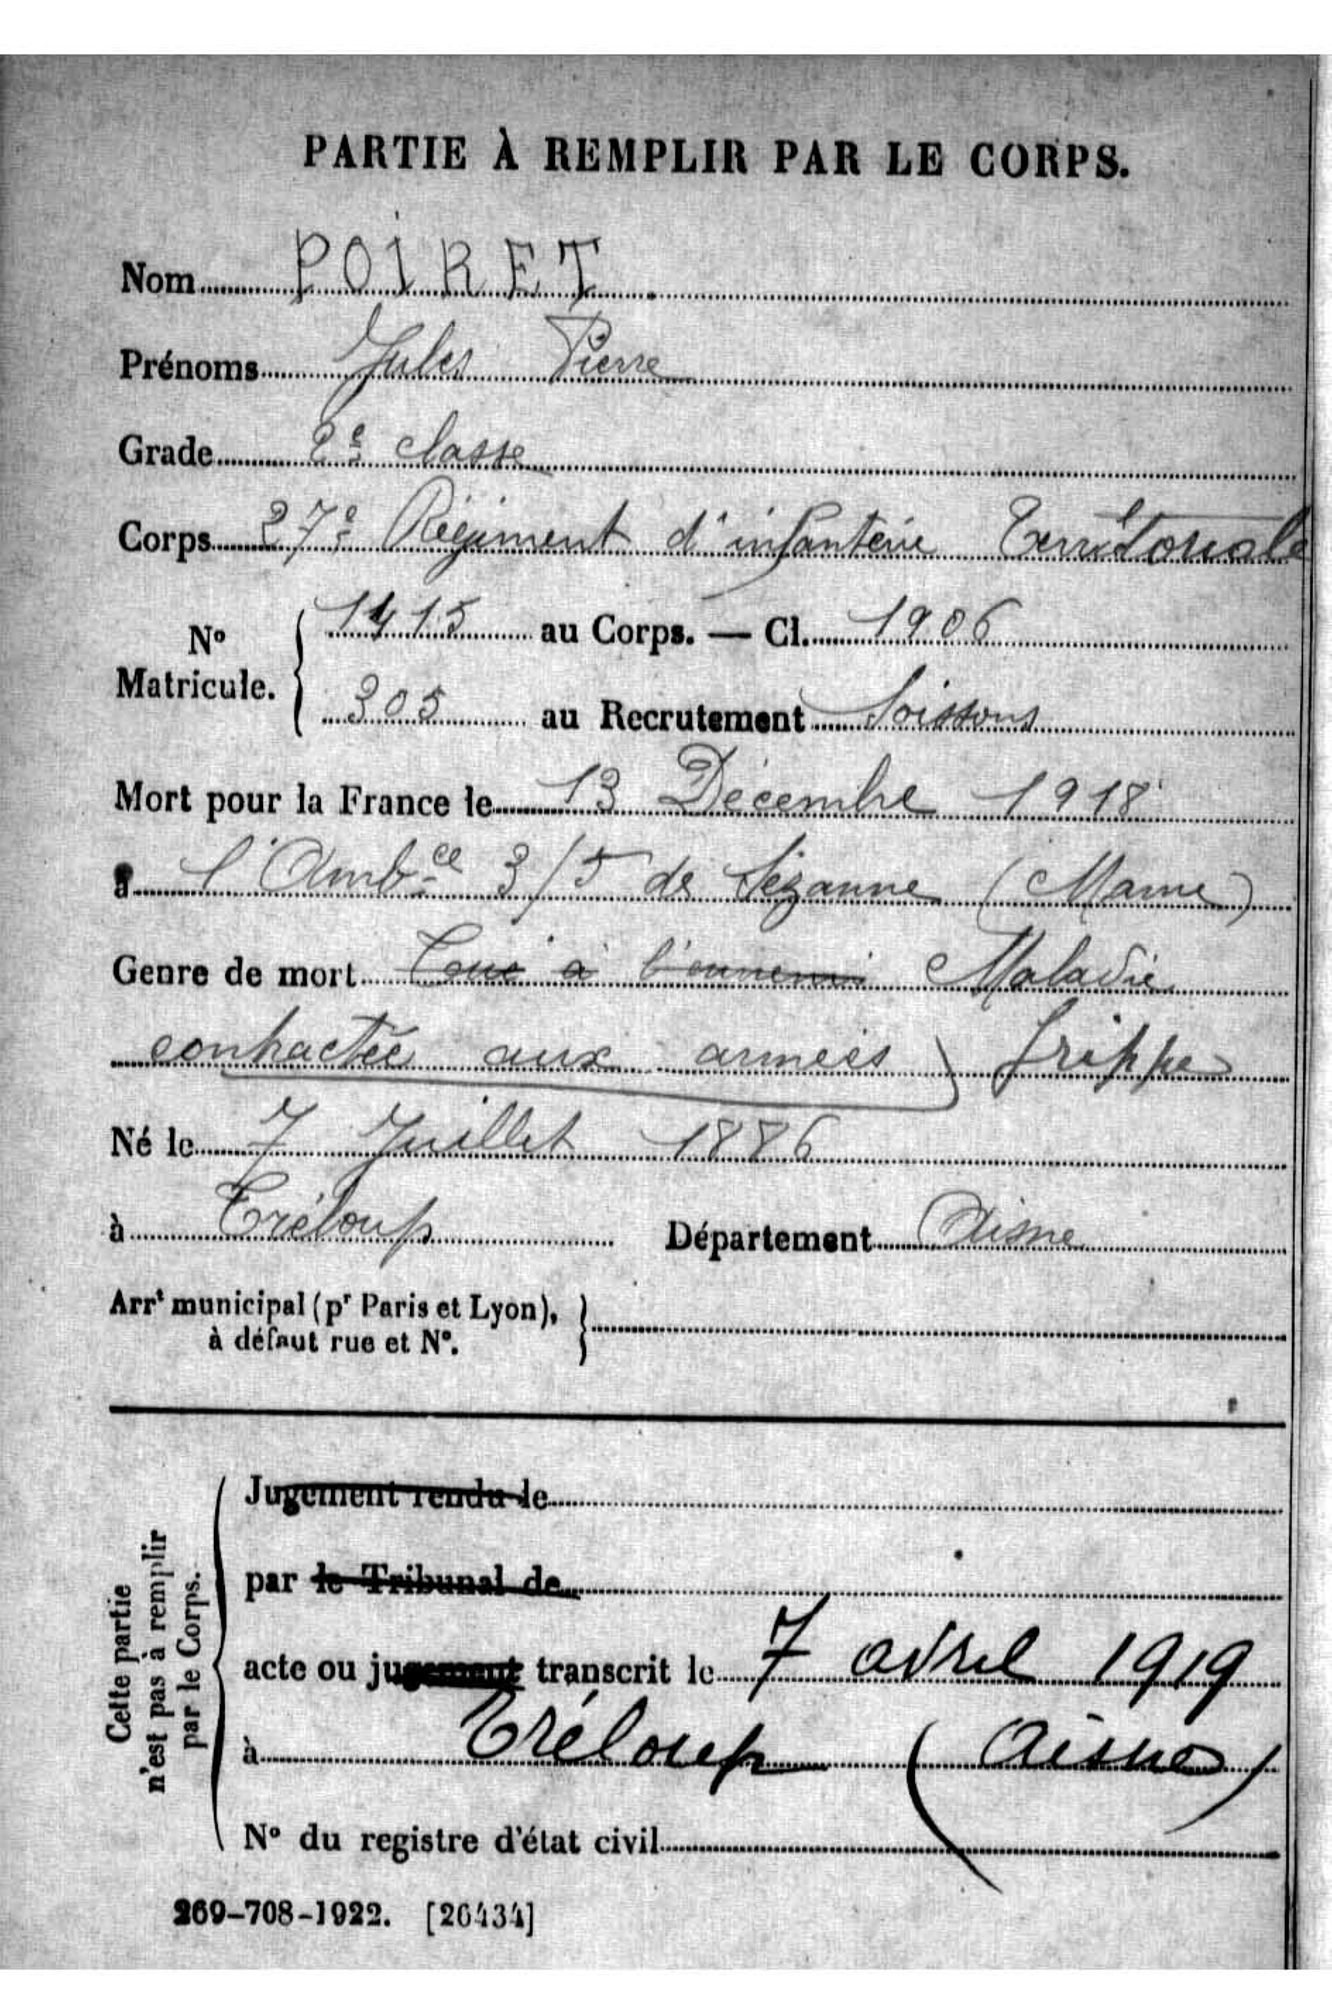 PARTIE À REMPLIR PAR LE CORPS.
Nom POIRET
Prénoms Jules Pierre
Grade 2e classe
Corps 27e Régiment d'infanterie Territoriale
N° Matricule. { 1415 au Corps. — Cl. 1906
305 au Recrutement Soissons
Mort pour la France le 13 Décembre 1918
à l'Ambce 3/5 de Sézanne (Marne)
Genre de mort Tué à l'ennemi Maladie
contractée aux armées) Grippe
Né le 7 Juillet 1886
à Tréloup Département Aisne
Arrt municipal (pr Paris et Lyon),
à défaut rue et N°. }
Cette partie
n'est pas à remplir
par le Corps.
Jugement rendu le
par le Tribunal de
acte ou jugement transcrit le 7 avril 1919
à Tréloup (Aisne)
N° du registre d'état civil
269-708-1922. [26434]